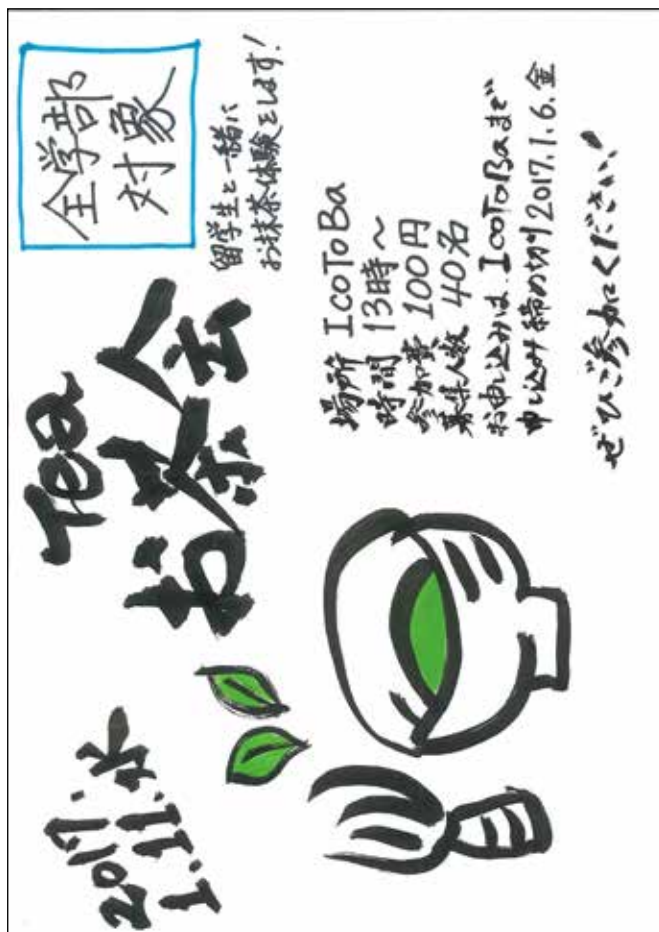 2017.
1.11.水
Tea
お茶会
全学部
対象
留学生と一緒に
お抹茶体験をします!
場所 IcoToBa
時間 13時~
参加費 100円
募集人数 40名
お申し込みは、IcoToBaまで
申し込み締め切り 2017.1.6.金
ぜひご参加ください!